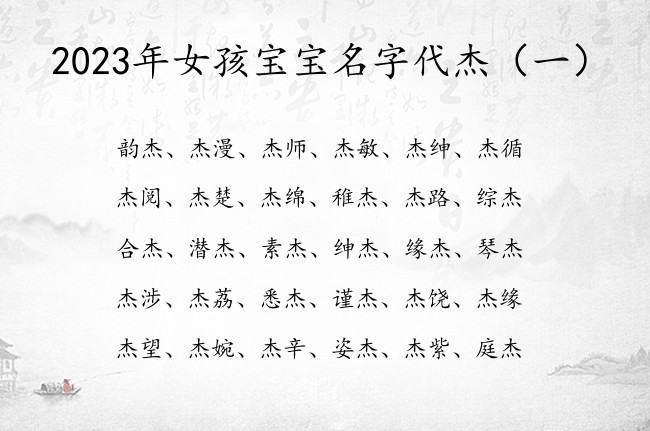 2023年女孩宝宝名字代杰（一）
韵杰、杰漫、杰师、杰敏、杰绅、杰循
杰阅、杰楚、杰绵、稚杰、杰路、综杰
合杰、潜杰、素杰、绅杰、缘杰、琴杰
杰涉、杰荔、悉杰、谨杰、杰饶、杰缘
杰望、杰婉、杰辛、姿杰、杰紫、庭杰